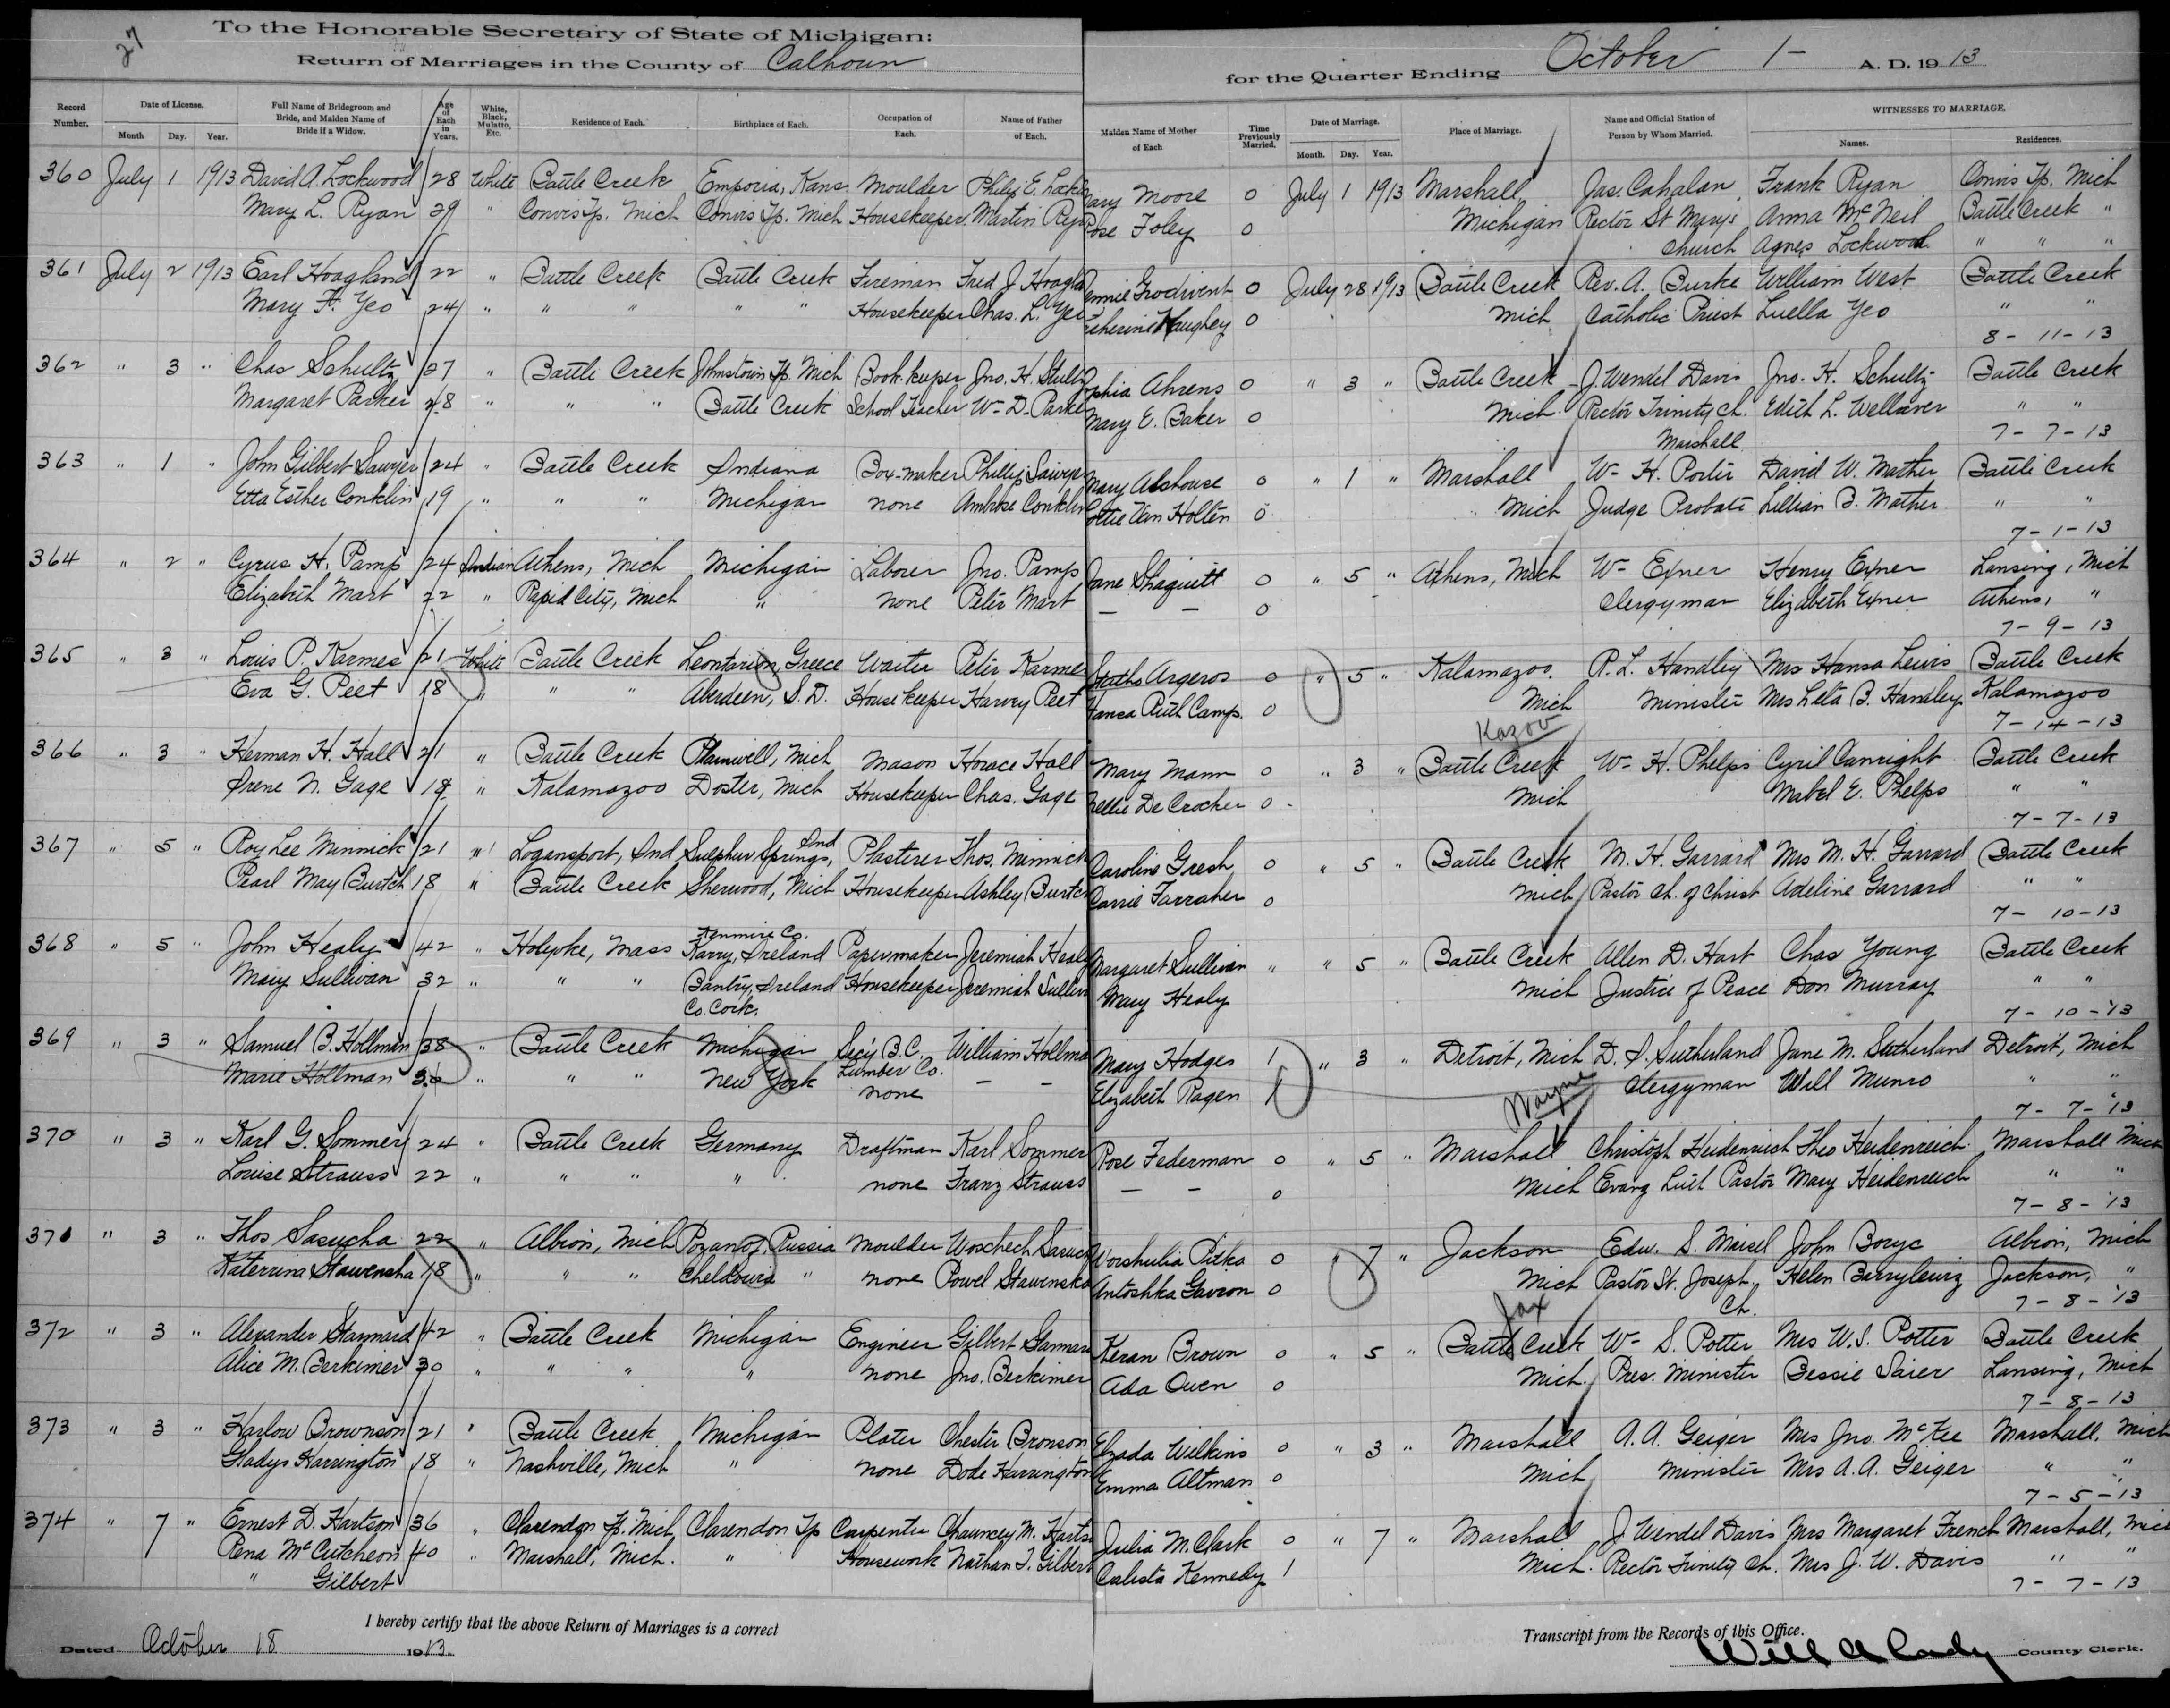 27
To the Honorable Secretary of State of Michigan:
Return of Marriages in the County of Calhoun
for the Quarter Ending October 1- A. D. 1913
Record Number. Date of License. Month Day. Year. Full Name of Bridegroom and Bride, and Maiden Name of Bride if a Widow. Age of Each in Years. White, Black, Mulatto, Etc. Residence of Each. Birthplace of Each. Occupation of Each. Name of Father of Each. Maiden Name of Mother of Each Time Previously Married. Date of Marriage. Month. Day. Year. Place of Marriage. Name and Official Station of Person by Whom Married. WITNESSES TO MARRIAGE. Names. Residences.
360 July 1 1913 David A. Lockwood 28 White Battle Creek Emporia, Kans. Moulder Philip E. Mary Moore 0 July 1 1913 Marshall Jas. Cahalan Frank Ryan Convis Tp. Mich
Mary L. Ryan 29 " Convis Tp. Mich Convis Tp. Mich Housekeeper Martin Rose Foley 0 Michigan Rector St Mary's Anna McNeil Battle Creek "
Church Agnes Lockwood " " "
361 July 2 1913 Earl Hoagland 22 " Battle Creek Battle Creek Fireman Fred J. 0 July 28 1913 Battle Creek Rev. A. Burke William West Battle Creek
Mary F. Yeo 24 " " " " " Housekeeper Chas. L. Yeo Haughey 0 Mich Catholic Priest Luella Yeo " "
8-11-13
362 " 3 " Chas Schultz 27 " Battle Creek Johnstown Tp. Mich Book-keeper Jno. H. Ahrens 0 " 3 " Battle Creek J. Wendel Davis Jno. H. Schultz Battle Creek
Margaret Parker 28 " " " Battle Creek School Teacher Wm D. Mary E. Baker 0 Mich Rector Trinity Ch. Edith L. " "
Marshall 7-7-13
363 " 1 " John Gilbert Sawyer 24 " Battle Creek Indiana Box-maker Phillip Mary Alshouse 0 " 1 " Marshall Wm H. Porter David W. Mather Battle Creek
Etta Esther Conklin 19 " " " Michigan none Ambrose Conklin Lottie Van Holten 0 Mich Judge Probate Lillian B. Mather " "
7-1-13
364 " 2 " Cyrus H. Pamp 24 Indian Athens, Mich Michigan Laborer Jno. Pamp Jane 0 " 5 " Athens, Mich Wm Exner Henry Exner Lansing, Mich
Elizabeth Mart 22 " Rapid City, Mich " none Peter Mart - - 0 Clergyman Elizabeth Exner Athens, "
7-9-13
365 " 3 " Louis P. Karmes 21 White Battle Creek Greece Waiter Peter Argeros 0 " 5 " Kalamazoo. P. L. Handley Mrs Hansa Lewis Battle Creek
Eva G. Peet 18 " " " Aberdeen, S. D. Housekeeper Harvey Peet Ruth Camp. 0 Mich Minister Mrs Leta B. Handley Kalamazoo
Kazoo 7-14-13
366 " 3 " Herman H. Hall 21 " Battle Creek Plainwell, Mich Mason Horace Hall Mary Mann 0 " 3 " Battle Creek Wm H. Phelps Cyril Canright Battle Creek
Irene N. Gage 18 " Kalamazoo Doster, Mich Housekeeper Chas. Gage Nellie De Crocker 0 Mich Mabel E. Phelps " "
7-7-13
367 " 5 " Roy Lee Minnick 21 " Logansport, Ind Sulphur Springs, Ind Plasterer Thos. Minnick Caroline Gresh 0 " 5 " Battle Creek M. H. Garrard Mrs M. H. Garrard Battle Creek
Pearl May Burtch 18 " Battle Creek Sherwood, Mich Housekeeper Ashley Carrie Farraher 0 Mich Pastor Ch. of Christ Adeline Garrard " "
7-10-13
368 " 5 " John Healy 42 " Holyoke, Mass Kenmire Co. Karry, Ireland Papermaker Jeremiah Margaret Sullivan " " 5 " Battle Creek Allen D. Hart Chas Young Battle Creek
Mary Sullivan 32 " " " Bantry, Ireland Housekeeper Jeremiah Mary Healy Mich Justice of Peace Don Murray " "
Co. Cork. 7-10-'13
369 " 3 " Samuel B. Hollman 38 " Battle Creek Michigan Sec'y B. C. Lumber Co. William Mary Hodges 1 " 3 " Detroit, Mich D. S. Sutherland Jane M. Sutherland Detroit, Mich
Marie Hollman " " " New York none - - Elizabeth Ragen 1 Wayne Clergyman Will Munro " "
7-7-'13
370 " 3 " Karl G. Sommer 24 " Battle Creek Germany Draftman Karl Sommer Rose Federman 0 " 5 " Marshall Christoph Heidenreich Theo Heidenreich Marshall Mich
Louise Strauss 22 " " " " none Franz Strauss - - 0 Mich Evang Luth Pastor Mary Heidenreich " "
7-8-'13
371 " 3 " Thos Sasucha 22 " Albion, Mich Russia Moulder Woschech Pitka 0 " 7 " Jackson Edw. S. Maisel John Borys Albion, Mich
Katerrina Stawensha 18 " " " " none Powel Stawenska Antoshka Gavron 0 Mich Pastor St. Joseph Ch. Helen Jackson, "
Jax 7-8-'13
372 " 3 " Alexander Stannard 42 " Battle Creek Michigan Engineer Gilbert Keran Brown 0 " 5 " Battle Creek Wm S. Potter Mrs W. S. Potter Battle Creek
Alice M. Berkimer 30 " " " " none Jno. Berkimer Ada Owen 0 Mich. Pres. Minister Bessie Saier Lansing, Mich
7-8-13
373 " 3 " Harlow Brownson 21 " Battle Creek Michigan Plater Chester Bronson Elzada Wilkins 0 " 3 " Marshall A. A. Geiger Mrs Jno. McKee Marshall, Mich
Gladys Harrington 18 " Nashville, Mich " none Dode Harrington Emma Altman 0 Mich Minister Mrs A. A. Geiger " "
7-5-'13
374 " 7 " Ernest D. Hartson 36 " Clarendon Tp. Mich Clarendon Tp Carpenter Chauncey M. Julia M. Clark 0 " 7 " Marshall J. Wendel Davis Mrs Margaret French Marshall, Mich
Rena McCutcheon 40 " Marshall, Mich. " Housework Nathan T. Gilbert Calista Kennedy 1 Mich. Rector Trinity Ch. Mrs J. W. Davis " "
" Gilbert 7-7-13
I hereby certify that the above Return of Marriages is a correct Transcript from the Records of this Office.
Dated October 18 1913. Will A Cady County Clerk.